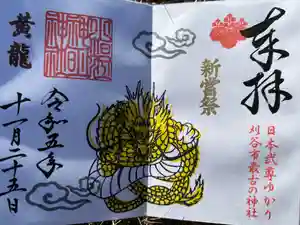 奉拝
日本武尊ゆかり
刈谷市最古の神社
新嘗祭
黄龍
令和五年
十一月二十五日